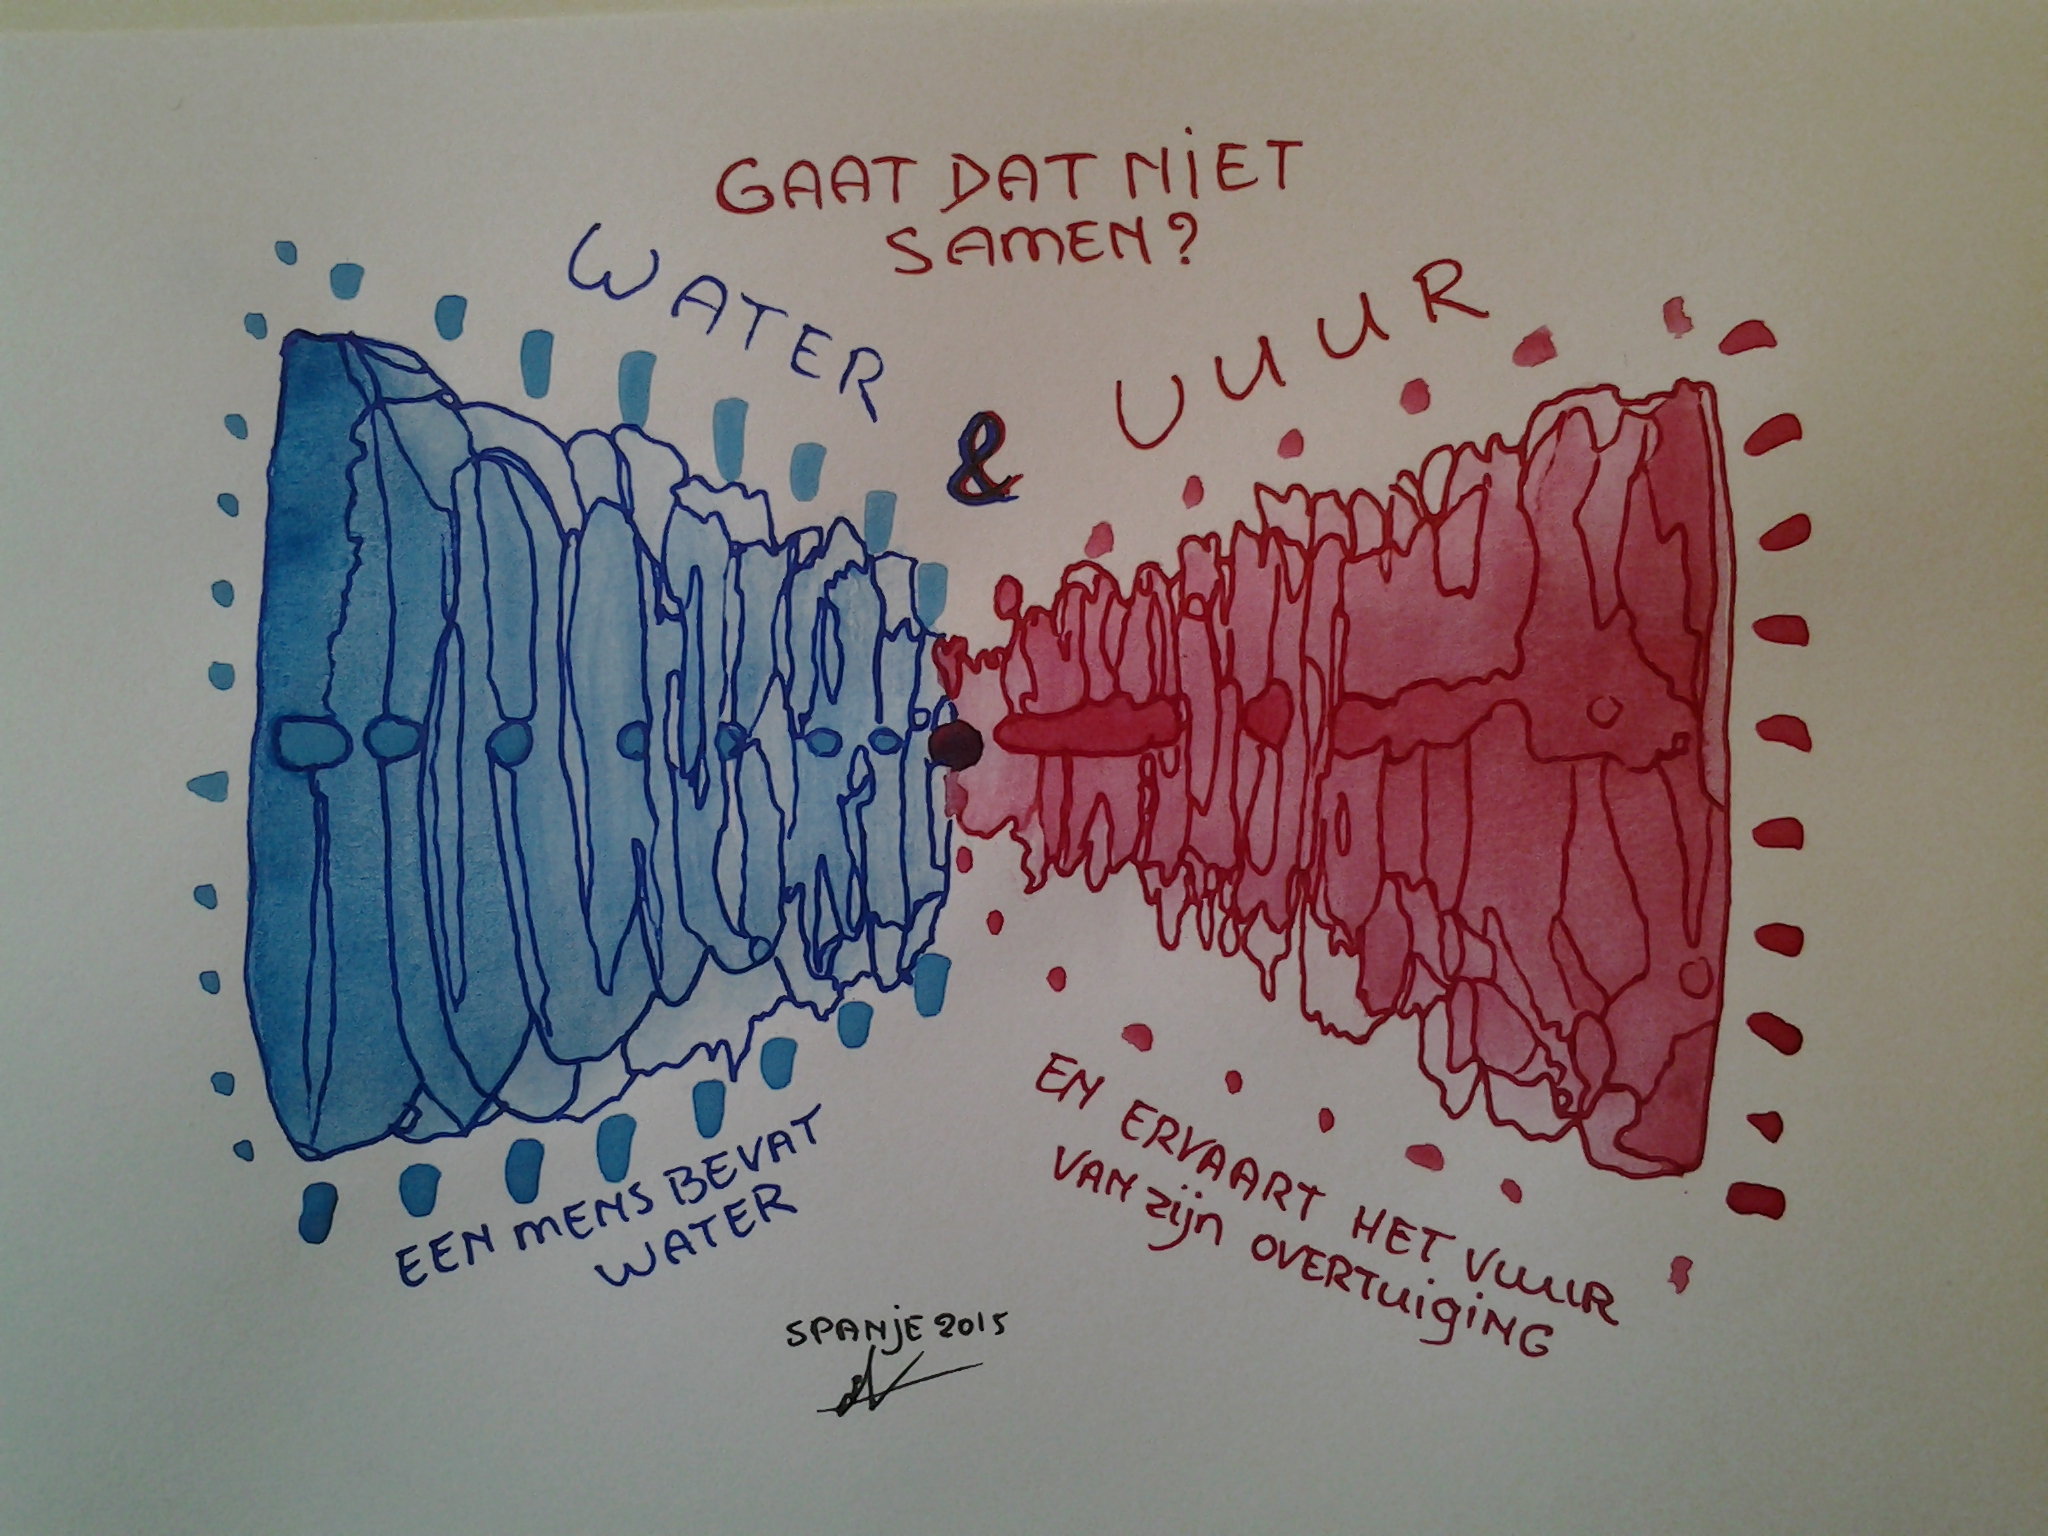 GAAT DAT NiET
SAMEN?
WATER
&
VUUR
EEN MENS BEVAT
WATER
EN ERVAART HET VUUR
VAN zijn OVERTUIGING
SPANjE 2015